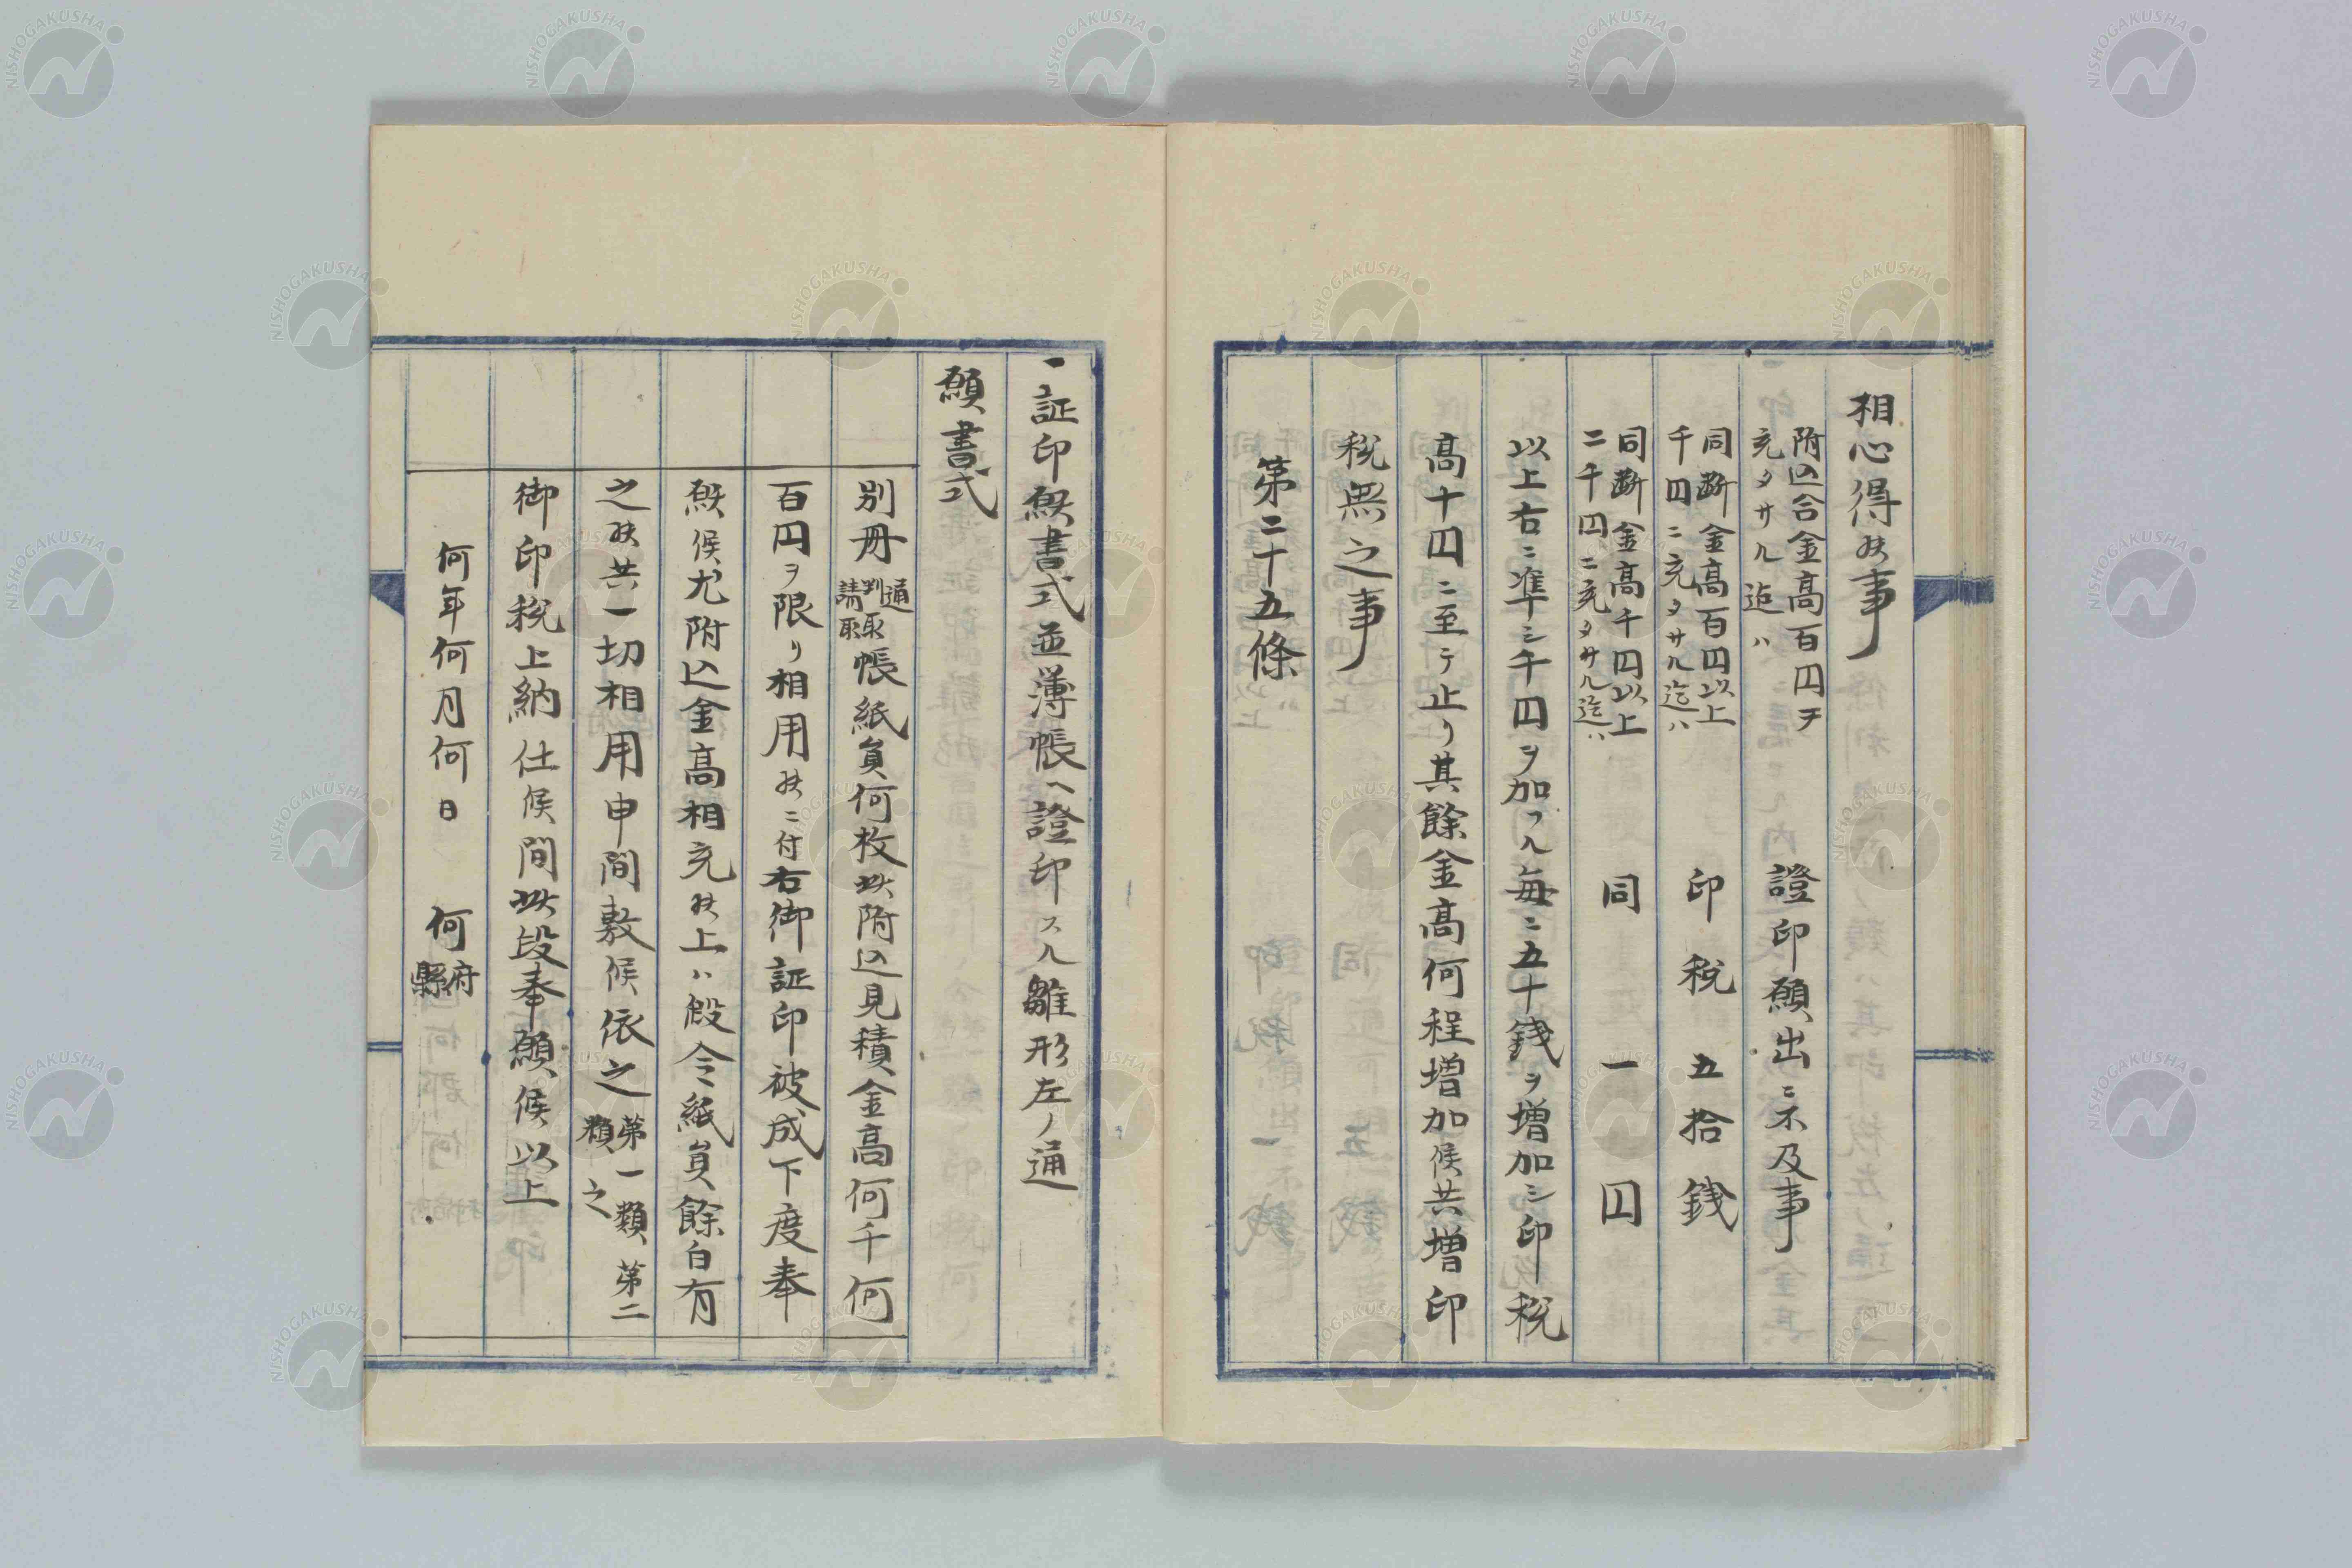 相心得候事
附込合金高百円ヲ
充タサル迄ハ
證印願出ニ不及事
同断金高百円以上
千円ニ充タサル迄ハ
印税五拾銭
同断金高千円以上
二千円ニ充タサル迄ハ
同一円
以上右ニ準シ千円ヲ加フル毎ニ五十銭ヲ増加シ印税
高十円ニ至テ止リ其餘金高何程増加候共増印
税無之事
第二十五條
一証印願書式並薄帳ヘ證印スル雛形左ノ通
願書式
別冊
通
判取
請取
帳紙員何枚此附込見積金高何千何
百円ヲ限リ相用候ニ付右御証印被成下度奉
願候尤附込金高相充候上ハ假令紙員餘白有
之候共一切相用申間敷候依之
第一類第二
類之
御印税上納仕候間此段奉願候以上
何年何月何日
何
府
縣
NISHOGAKUSHA